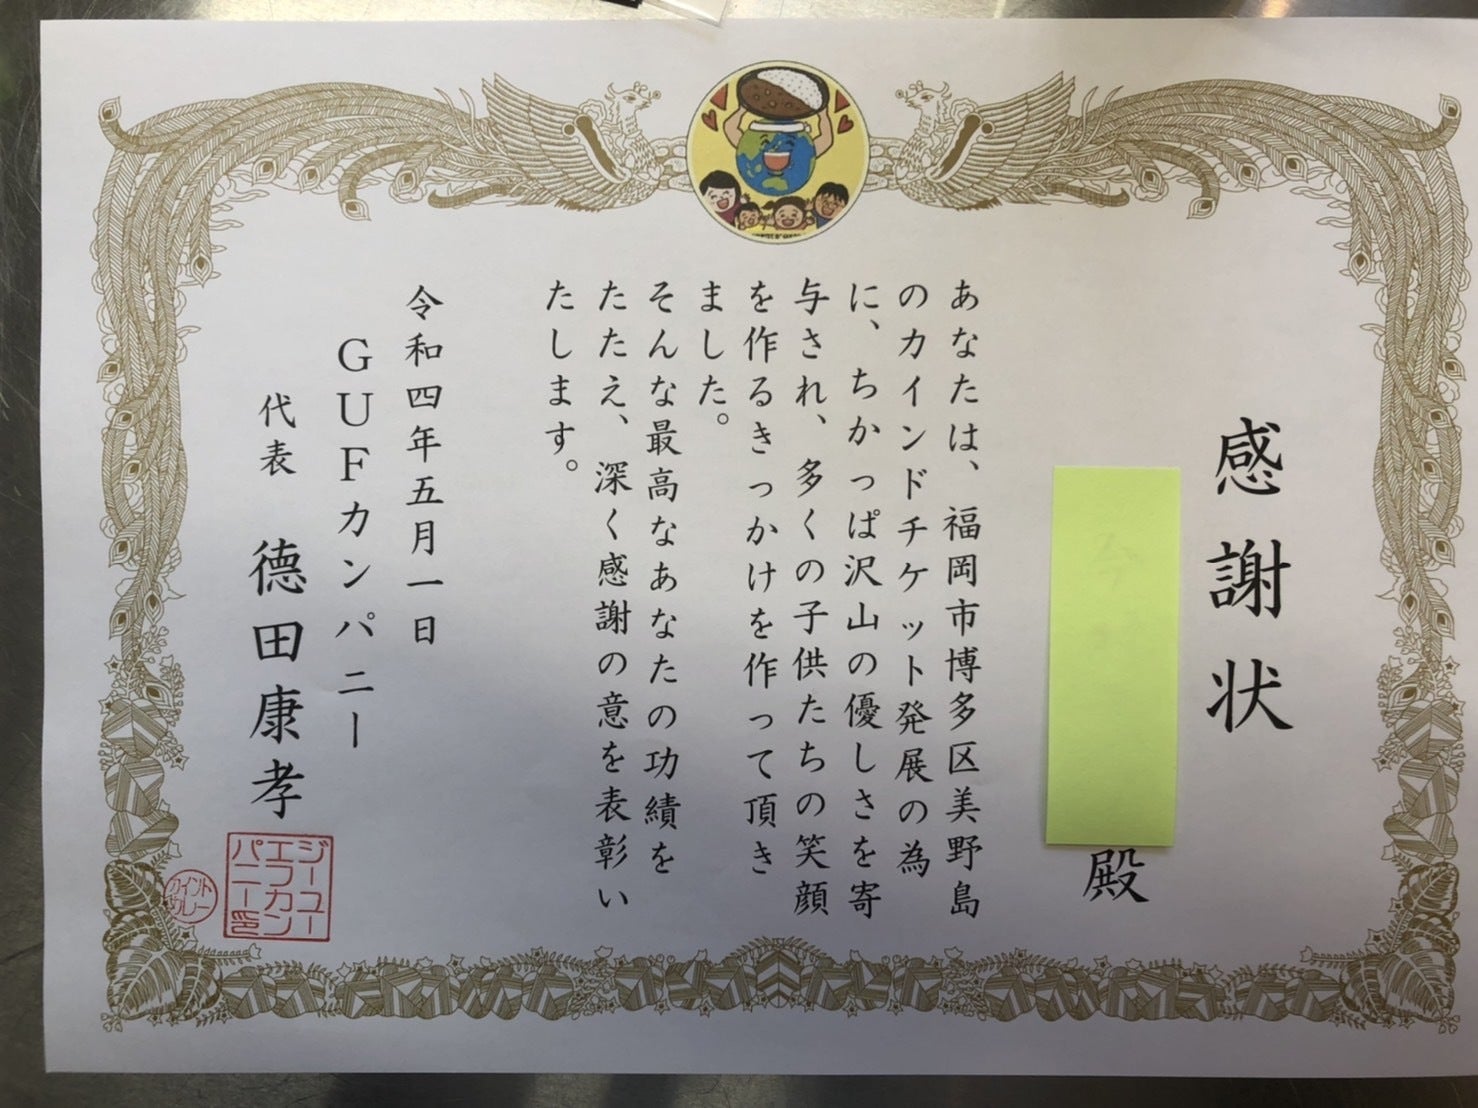 感謝状
殿
あなたは、福岡市博多区美野島
のカインドチケット発展の為
に、ちかっぱ沢山の優しさを寄
与され、多くの子供たちの笑顔
を作るきっかけを作って頂き
ました。
そんな最高なあなたの功績を
たたえ、深く感謝の意を表彰い
たします。
令和四年五月一日
GUFカンパニー
代表 徳田康孝
ジーユー
エフカン
パニー印